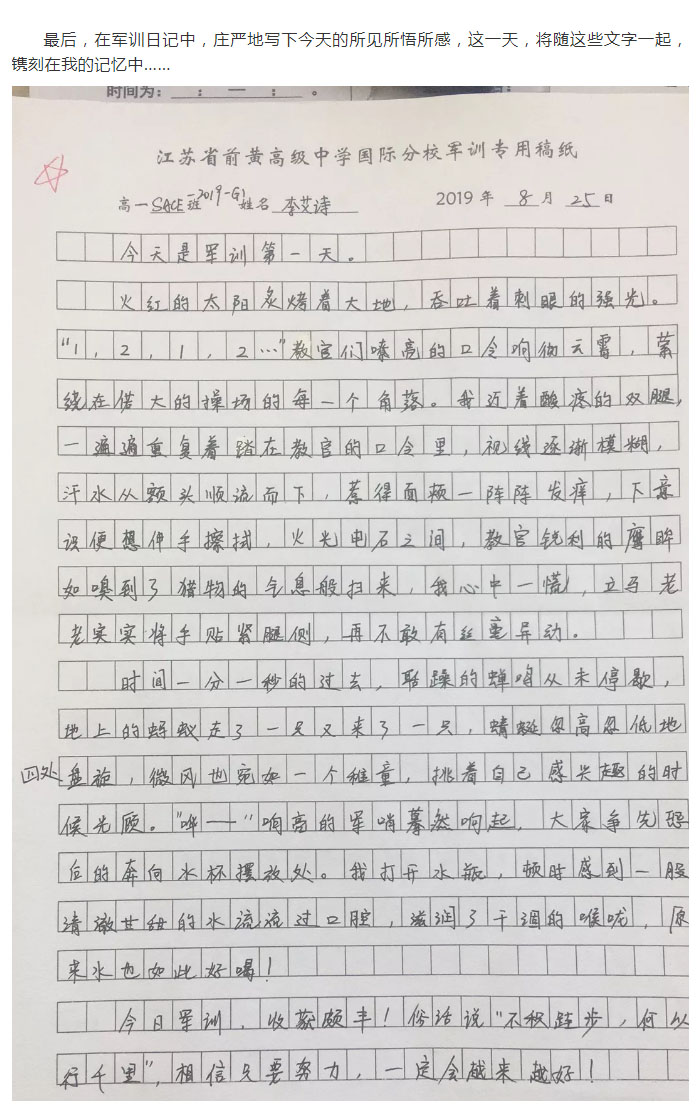 最后，在军训日记中，庄严地写下今天的所见所悟所感，这一天，将随这些文字一起，
镌刻在我的记忆中……
时间为： ： — ： 。
江苏省前黄高级中学国际分校军训专用稿纸
高一SACE班一2019-G1姓名 李艾诗 2019 年 8 月 25 日
今天是军训第一天。
火红的太阳炙烤着大地，吞吐着刺眼的强光。
“1，2，1，2…”教官们嘹亮的口令响彻云霄，萦
绕在偌大的操场的每一个角落。我迈着酸疼的双腿，
一遍遍重复着踏在教官的口令里，视线逐渐模糊，
汗水从额头顺流而下，惹得面颊一阵阵发痒，下意
识便想伸手擦拭，火光电石之间，教官锐利的鹰眸
如嗅到了猎物的气息般扫来，我心中一慌，立马老
老实实将手贴紧腿侧，再不敢有丝毫异动。
时间一分一秒的过去，聒躁的蝉鸣从未停歇，
地上的蚂蚁走了一只又来了一只，蜻蜓忽高忽低地
四处盘旋，微风也宛如一个稚童，挑着自己感兴趣的时
候光顾。“哔——”响亮的军哨蓦然响起，大家争先恐
后的奔向水杯摆放处。我打开水瓶，顿时感到一股
清澈甘甜的水流流过口腔，滋润了干涸的喉咙，原
来水也如此好喝！
今日军训，收获颇丰！俗话说“不积跬步，何以
行千里”，相信只要努力，一定会越来越好！